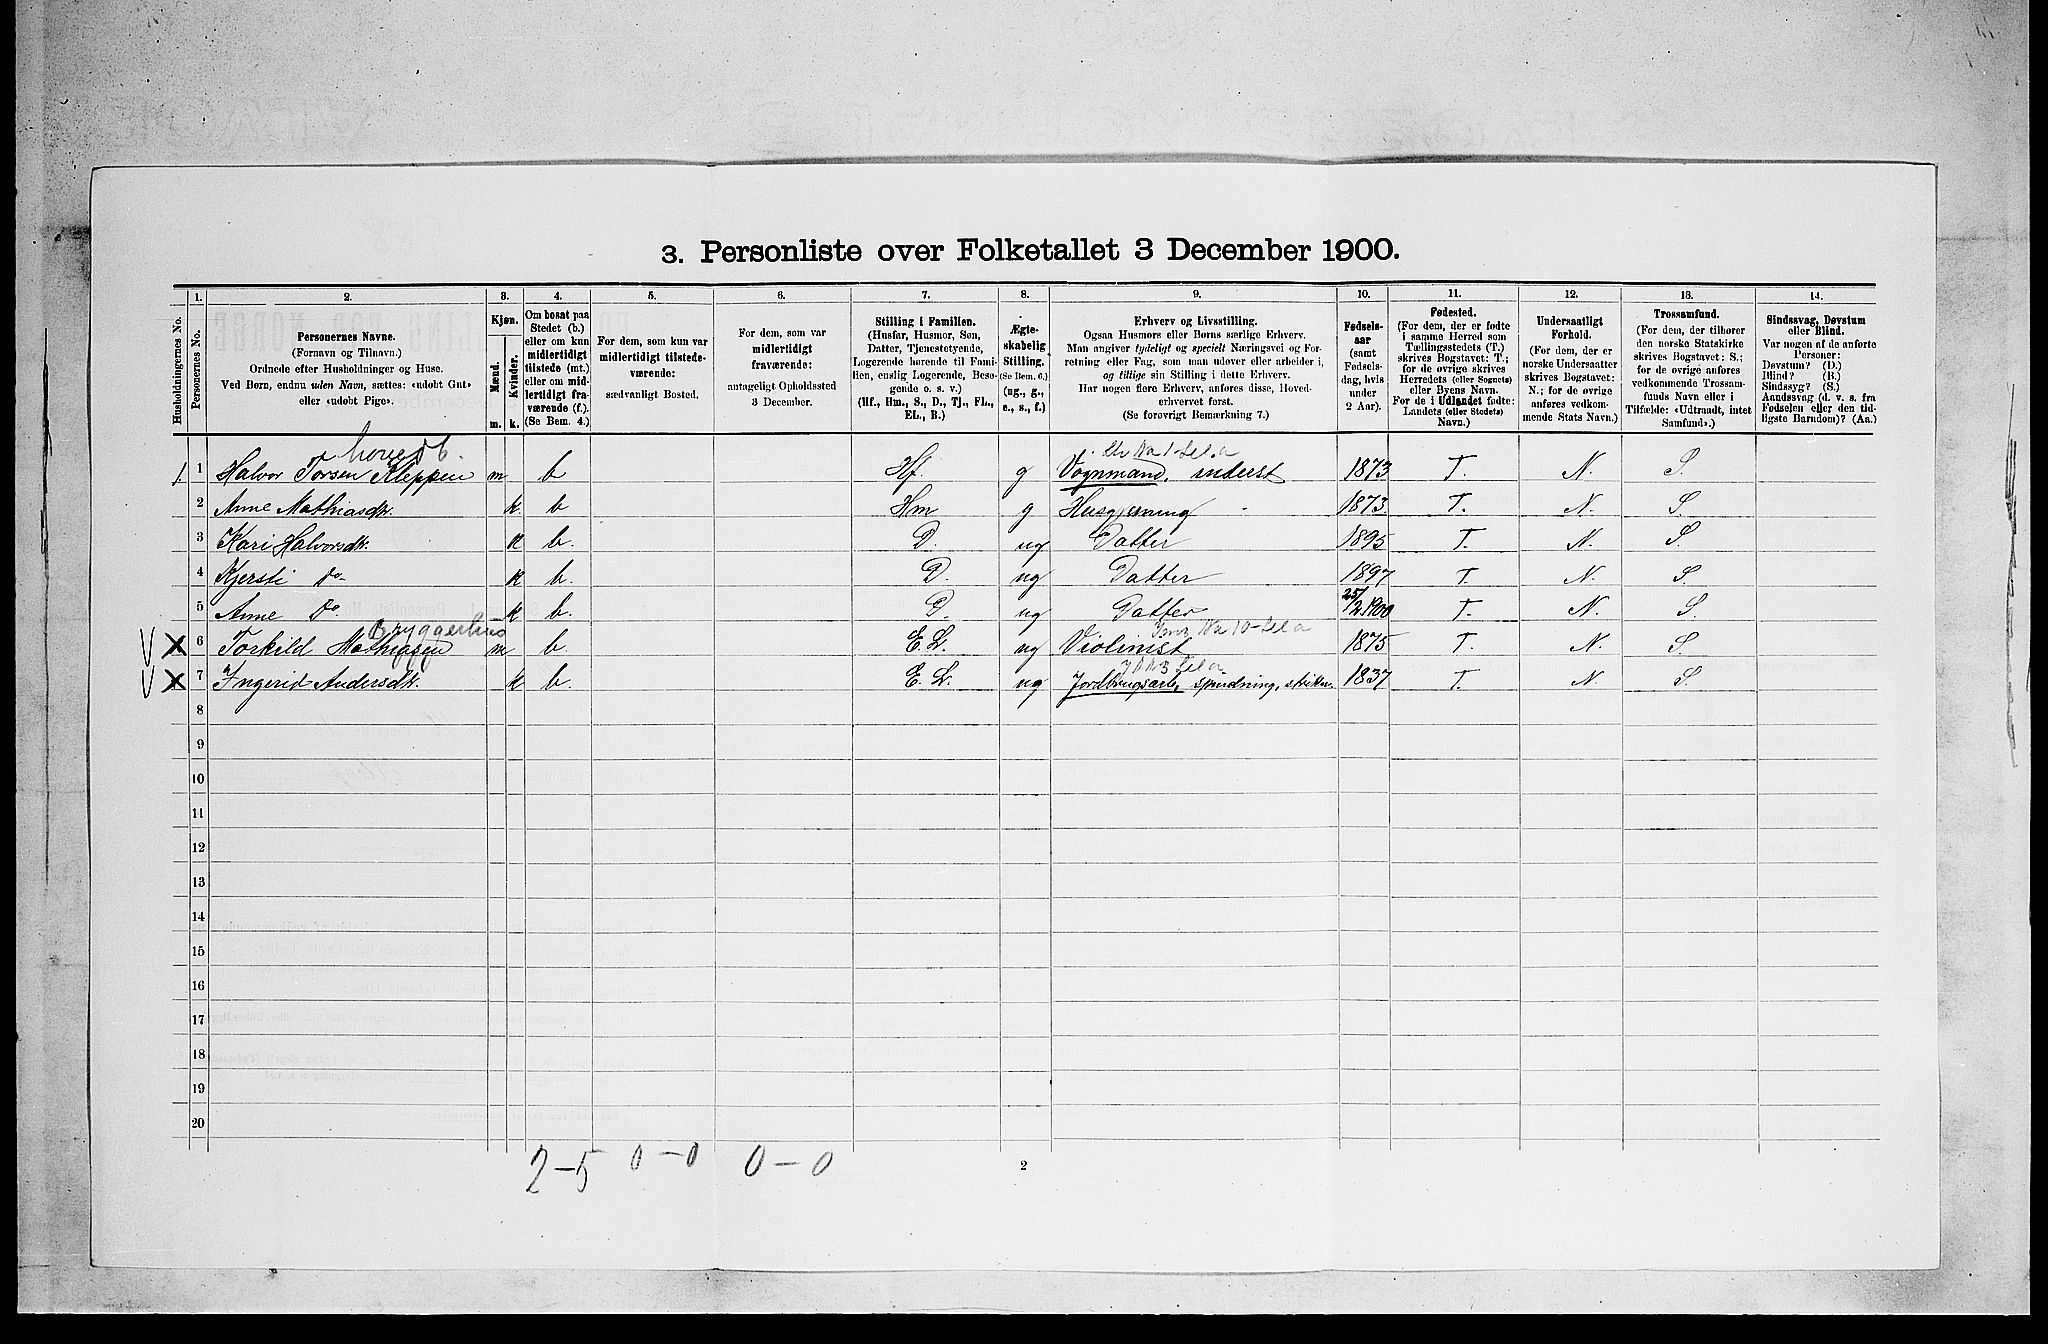 3. Personliste over Folketallet 3 December 1900.
Husholdningernes No.
1.
Personernes No.
2.
Personernes Navne.
(Fornavn og Tilnavn.)
Ordnede efter Husholdninger og Huse.
Ved Børn, endnu uden Navn, sættes: «udøbt Gut»
eller «udøbt Pige».
3.
Kjøn.
Mænd.
Kvinder.
m. k.
4.
Om bosat paa
Stedet (b.)
eller om kun
midlertidigt
tilstede (mt.)
eller om mid-
lertidigt fra-
værende (f.)
(Se Bem. 4.)
5.
For dem, som kun var
midlertidigt tilstede-
værende:
sædvanligt Bosted.
6.
For dem, som var
midlertidigt
fraværende:
antageligt Opholdssted
3 December.
7.
Stilling i Familien.
(Husfar, Husmor, Søn,
Datter, Tjenestetyende,
Logerende hørende til Fami-
lien, enslig Logerende, Besø-
gende o. s. v.)
(Hf., Hm., S., D., Tj., FL.,
EL., B.)
8.
Ægte-
skabelig
Stilling.
(Se Bem. 6.)
(ug., g.,
e., s., f.)
9.
Erhverv og Livsstilling.
Ogsaa Husmors eller Børns særlige Erhverv.
Man angiver tydeligt og specielt Næringsvei og For-
retning eller Fag, som man udøver eller arbeider i,
og tillige sin Stilling i dette Erhverv.
Har nogen flere Erhverv, anføres disse, Hoved-
erhvervet først.
(Se forøvrigt Bemærkning 7.)
10.
Fødsels-
aar
(samt
Fødsels-
dag, hvis
under
2 Aar).
11.
Fødested.
(For dem, der er fødte
i samme Herred som
Tællingsstedets (T.)
skrives Bogstavet: T.;
for de øvrige skrives
Herredets (eller Sognets)
eller Byens Navn.
For de i Udlandet fødte:
Landets (eller Stedets)
Navn.)
12.
Undersaatligt
Forhold.
(For dem, der er
norske Undersaatter
skrives Bogstavet:
N.; for de øvrige
anføres vedkom-
mende Stats Navn.)
13.
Trossamfund.
(For dem, der tilhører
den norske Statskirke
skrives Bogstavet: S.;
for de øvrige anføres
vedkommende Trossam-
funds Navn eller i
Tilfælde: «Udtraadt, intet
Samfund».)
14.
Sindssvag, Døvstum
eller Blind.
Var nogen af de anførte
Personer:
Døvstum? (D.)
Blind? (B.)
Sindssyg? (S.)
Aandssvag (d. v. s. fra
Fødselen eller den tid-
ligste Barndom)? (Aa.)
hovedb.
1. 1 Halvor Torsen Kleppen m b Hf. g Vognmand, inderst 1873 T. N. S.
2 Anne Mathiasdt. k. b Hm g Husgjerning 1873. T. N. S.
3 Kari Halvorsdt. k b. D. ug Datter 1895 T. N. S.
4 Kjersti do k b. D. ug Datter 1897 T. N. S.
5 Anne Do. k b. D. ug Datter 25/2 1900 T. N. S.
Bryggerhus
V X 6 Torkild Mathiasen m b. E. L. ug Violinist 1875 T. N. S.
V X 7 Ingerid Andersdt. k b. E. L. ug Jordbrugsarb, spinding, strikn. 1837 T. N. S.
8
9
10
11
12
13
14
15
16
17
18
19
20
2-5 0-0 0-0
2